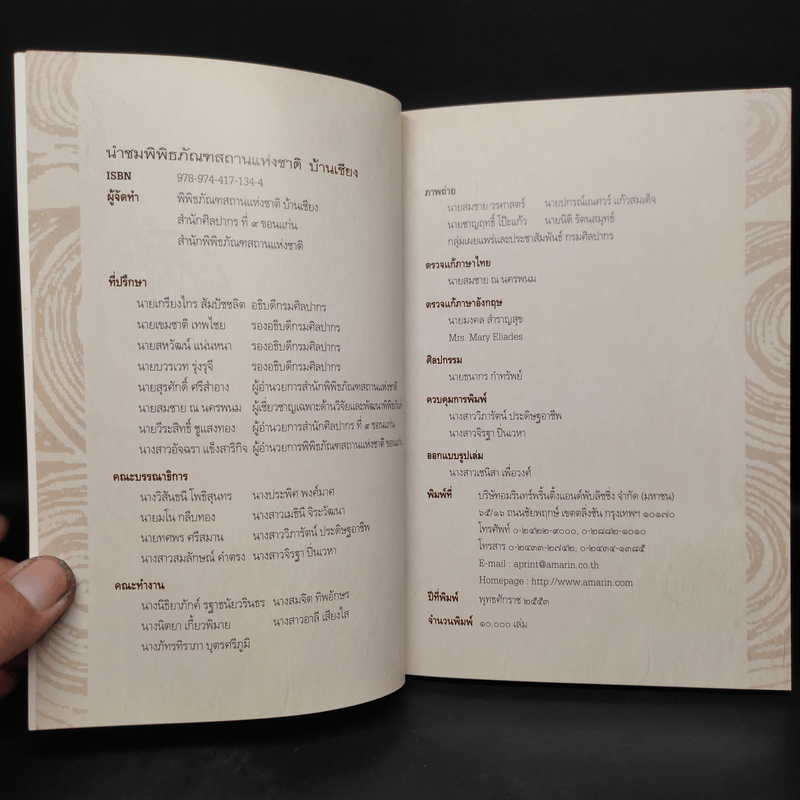 นำชมพิพิธภัณฑสถานแห่งชาติ บ้านเชียง
ISBN 978-974-417-134-4
ผู้จัดทำ พิพิธภัณฑสถานแห่งชาติ บ้านเชียง
สำนักศิลปากร ที่ ๙ ขอนแก่น
สำนักพิพิธภัณฑสถานแห่งชาติ
ที่ปรึกษา
นายเกรียงไกร สัมปัชชลิต อธิบดีกรมศิลปากร
นายเขมชาติ เทพไชย รองอธิบดีกรมศิลปากร
นายสหวัฒน์ แน่นหนา รองอธิบดีกรมศิลปากร
นายบวรเวท รุ่งรุจี รองอธิบดีกรมศิลปากร
นายสุรศักดิ์ ศรีสำอาง ผู้อำนวยการสำนักพิพิธภัณฑสถานแห่งชาติ
นายสมชาย ณ นครพนม ผู้เชี่ยวชาญเฉพาะด้านวิจัยและพัฒนาพิพิธภัณฑ์
นายวีระสิทธิ์ ชูแสงทอง ผู้อำนวยการสำนักศิลปากร ที่ ๙ ขอนแก่น
นางสาวอัจฉรา แข็งสาริกิจ ผู้อำนวยการพิพิธภัณฑสถานแห่งชาติ ขอนแก่น
คณะบรรณาธิการ
นางวิสันธนี โพธิสุนทร นางประพิศ พงศ์มาศ
นายมโน กลีบทอง นางสาวเมธินี จิระวัฒนา
นายทศพร ศรีสมาน นางสาววิภารัตน์ ประดิษฐอาชีพ
นางสาวสมลักษณ์ คำตรง นางสาวจิรฐา ปิ่นเวหา
คณะทำงาน
นางนิธิยาภักค์ รฐาธนัยวรินธร นางสมจิต ทิพอักษร
นางนิตยา เกี้ยวพิมาย นางสาวอาลี เสียงใส
นางภัทรทิราภา บุตรศรีภูมิ
ภาพถ่าย
นายสมชาย วรศาสตร์ นายปกรณ์เณศวร์ แก้วสมเด็จ
นายชาญฤทธิ์ โป๊ะแก้ว นายนิติ รัตนสมุทธ์
กลุ่มเผยแพร่และประชาสัมพันธ์ กรมศิลปากร
ตรวจแก้ภาษาไทย
นายสมชาย ณ นครพนม
ตรวจแก้ภาษาอังกฤษ
นายมงคล สำราญสุข
Mrs. Mary Eliades
ศิลปกรรม
นายธนากร กำทรัพย์
ควบคุมการพิมพ์
นางสาววิภารัตน์ ประดิษฐอาชีพ
นางสาวจิรฐา ปิ่นเวหา
ออกแบบรูปเล่ม
นางสาวเชนิสา เพื่อวงศ์
พิมพ์ที่ บริษัทอมรินทร์พริ้นติ้งแอนด์พับลิชชิ่ง จำกัด (มหาชน)
๖๕/๑๖ ถนนชัยพฤกษ์ เขตตลิ่งชัน กรุงเทพฯ ๑๐๑๗๐
โทรศัพท์ ๐-๒๔๒๒-๙๐๐๐, ๐-๒๘๘๒-๑๐๑๐
โทรสาร ๐-๒๔๓๓-๒๗๔๒, ๐-๒๔๓๔-๑๓๘๕
E-mail : aprint@amarin.co.th
Homepage : http://www.amarin.com
ปีที่พิมพ์ พุทธศักราช ๒๕๕๓
จำนวนพิมพ์ ๑๐,๐๐๐ เล่ม